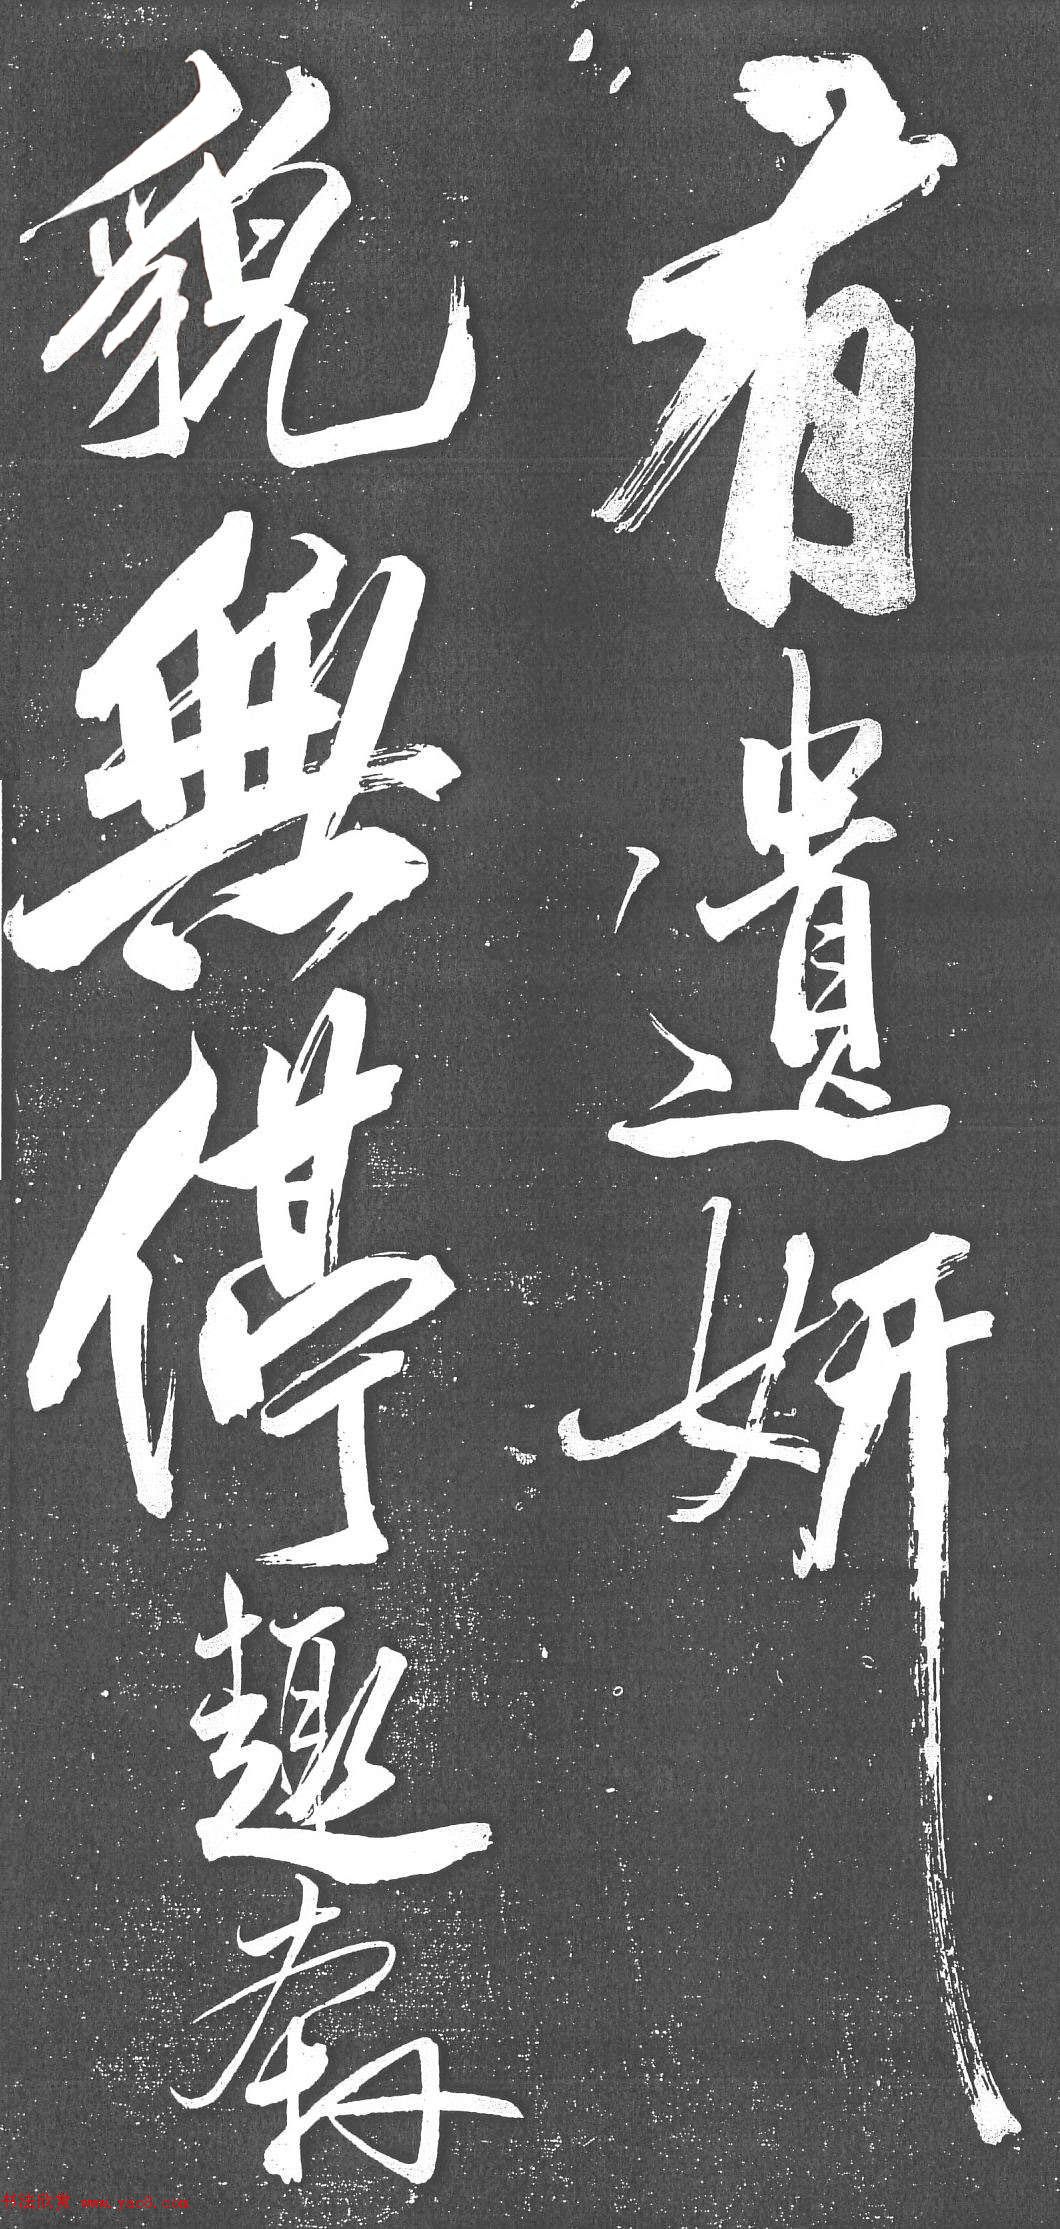 有遺妍
貌無停趣奔
书法欣赏 www.yac8.com